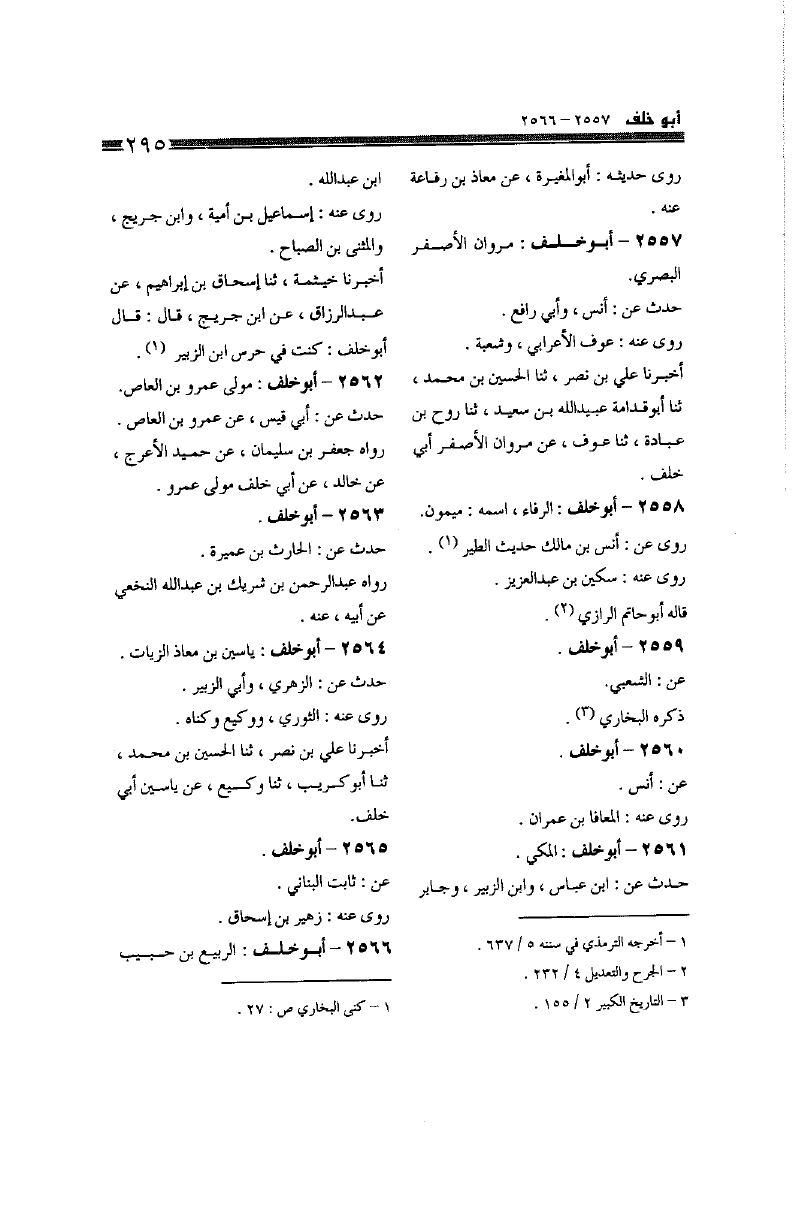 أبو خلف ٢٥٥٧ – ٢٥٦٦
٢٩٥
روى حديثه : أبوالمغيرة ، عن معاذ بن رفاعة
عنه .
٢٥٥٧ – أبوخلف : مروان الأصفر
البصري.
حدث عن : أنس ، وأبي رافع .
روى عنه : عوف الأعرابي ، وشعبة .
أخبرنا علي بن نصر ، ثنا الحسين بن محمد ،
ثنا أبوقدامة عبيدالله بن سعيد ، ثنا روح بن
عبادة ، ثنا عوف ، عن مروان الأصفر أبي
خلف .
٢٥٥٨ – أبوخلف : الرفاء ، اسمه : ميمون.
روى عن : أنس بن مالك حديث الطير (١) .
روى عنه : سكين بن عبدالعزيز .
قاله أبوحاتم الرازي (٢) .
٢٥٥٩ – أبوخلف .
عن : الشعبي.
ذكره البخاري (٣) .
٢٥٦٠ – أبوخلف .
عن : أنس .
روى عنه : المعافا بن عمران .
٢٥٦١ – أبوخلف : المكي .
حدث عن : ابن عباس ، وابن الزبير ، وجابر
١ – أخرجه الترمذي في سننه ٥ / ٦٣٧ .
٢ – الجرح والتعديل ٤ / ٢٣٢ .
٣ – التاريخ الكبير ٢ / ١٥٥ .
ابن عبدالله .
روى عنه : إسماعيل بن أمية ، وابن جريج ،
والمثنى بن الصباح .
أخبرنا خيثمة ، ثنا إسحاق بن إبراهيم ، عن
عبدالرزاق ، عن ابن جريج ، قال : قال
أبوخلف : كنت في حرس ابن الزبير (١) .
٢٥٦٢ – أبوخلف : مولى عمرو بن العاص.
حدث عن : أبي قيس ، عن عمرو بن العاص .
رواه جعفر بن سليمان ، عن حميد الأعرج ،
عن خالد ، عن أبي خلف مولى عمرو .
٢٥٦٣ – أبوخلف .
حدث عن : الحارث بن عميرة .
رواه عبدالرحمن بن شريك بن عبدالله النخعي
عن أبيه ، عنه .
٢٥٦٤ – أبوخلف : ياسين بن معاذ الزيات .
حدث عن : الزهري ، وأبي الزبير .
روى عنه : الثوري ، ووكيع وكناه .
أخبرنا علي بن نصر ، ثنا الحسين بن محمد ،
ثنا أبوكريب ، ثنا وكيع ، عن ياسين أبي
خلف.
٢٥٦٥ – أبوخلف .
عن : ثابت البناني .
روى عنه : زهير بن إسحاق .
٢٥٦٦ – أبوخلف : الربيع بن حبيب
١ – كنى البخاري ص : ٢٧ .